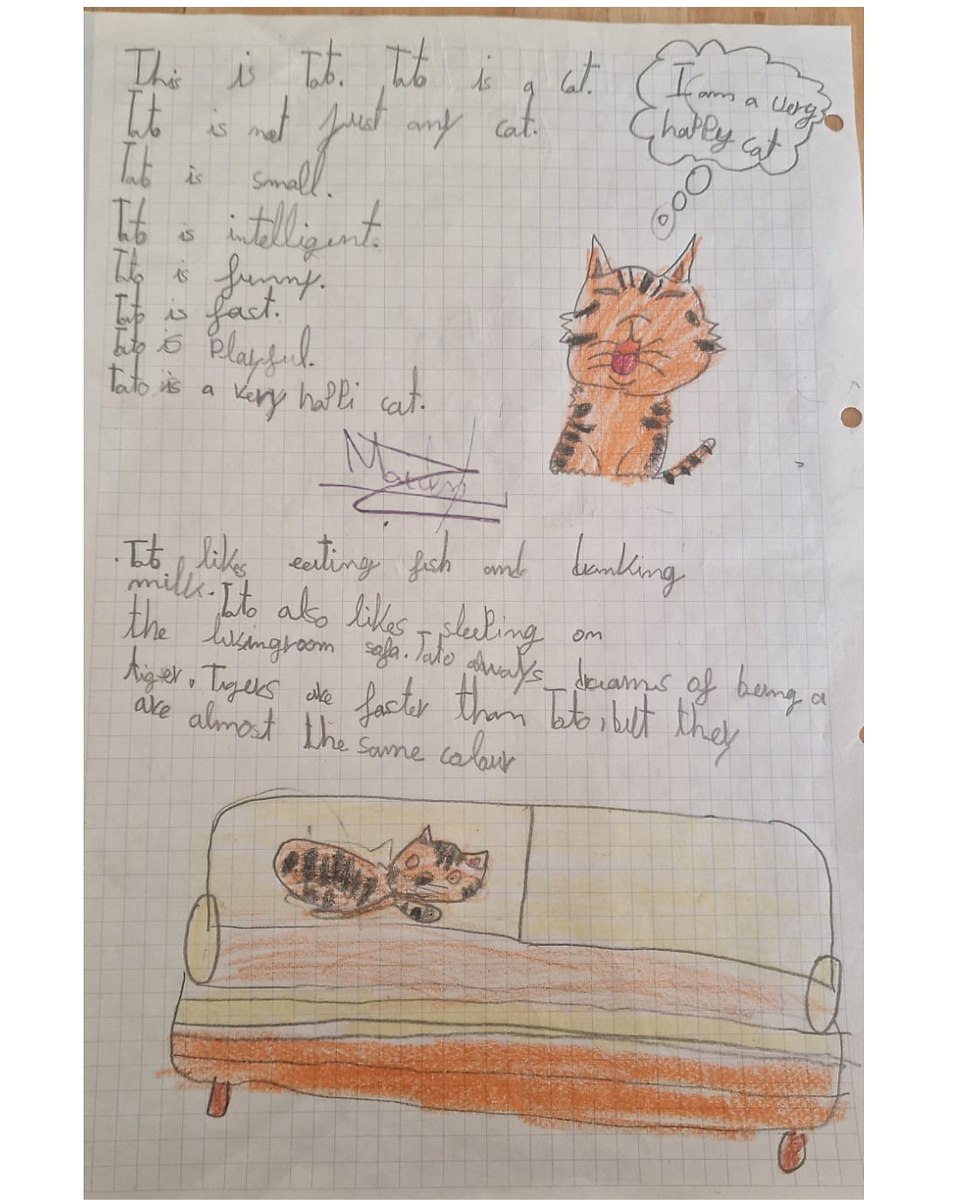 This is Tato. Tato is a cat.
Tato is not just any cat.
Tato is small.
Tato is intelligent.
Tato is funny.
Tato is fast.
Tato is Playful.
Tato is a very happi cat.
I am a very
happy cat
.Tato likes eating fish and drinking
milk. Tato also likes sleeping on
the livingroom sofa. Tato always dreams of being a
tiger. Tigers are faster than Tato, but they
are almost the same colour